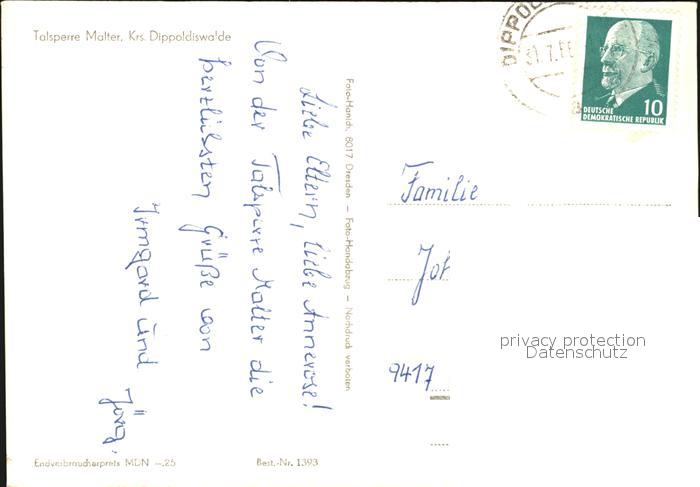 Talsperre Malter, Krs. Dippoldiswalde
Liebe Eltern, liebe Annerose!
Von der Talsperre Malter die
herzlichsten Grüße von
Irmgard und Jörg.
Foto-Hanich, 8017 Dresden – Foto-Handabzug – Nachdruck verboten
DIPPOL
31.7.6
10
DEUTSCHE
DEMOKRATISCHE REPUBLIK
Familie
Joh
9417
privacy protection
Datenschutz
Endverbraucherpreis MDN –.25
Best.-Nr. 1393